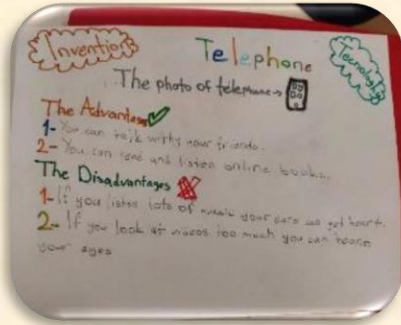 Inventions Telephone Tecnology
The photo of telephone →
The Advantages
1- You can talk with your friends.
2- You can read and listen online books.
The Disadvantages
1- If you listen lots of music your ears can get heart.
2- If you look at videos too much you can
your eyes